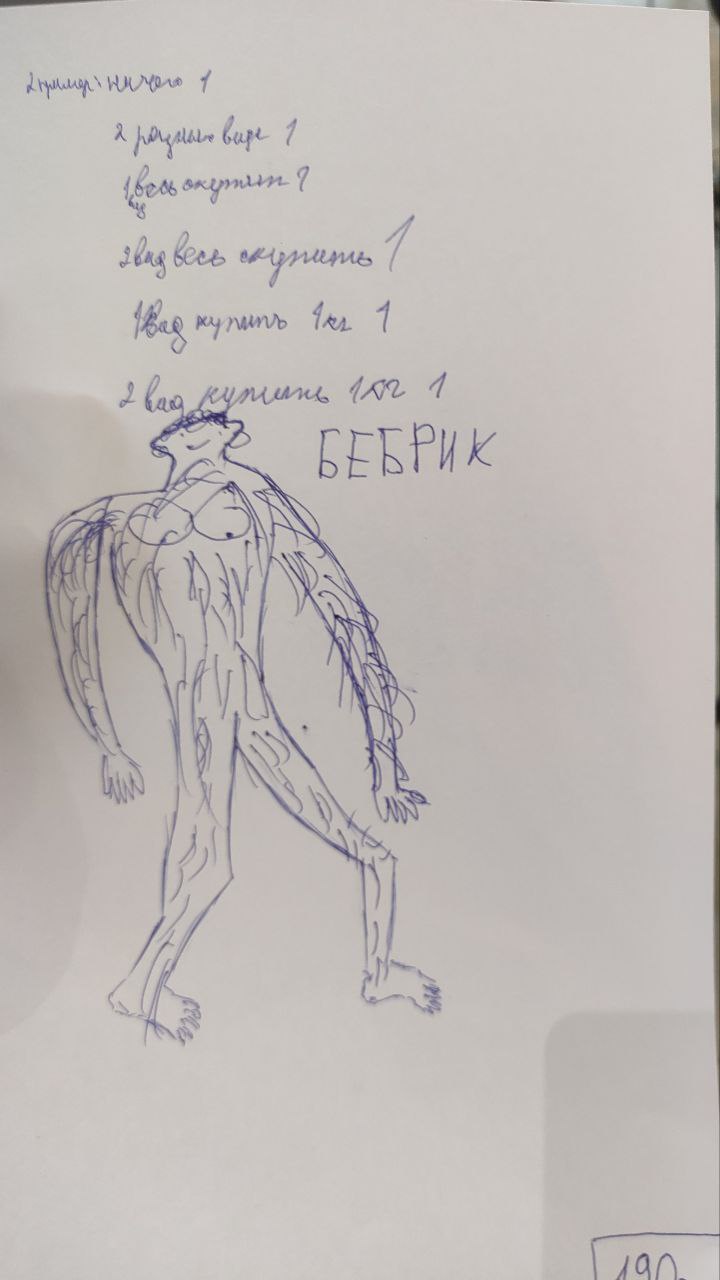 2 пример: ничего 1
2 разных виде 1
1 весь скупить 1
вид
2 вид весь скупить 1
1 вид купить 1кг 1
2 вид купить 1кг 1
БЕБРИК
190